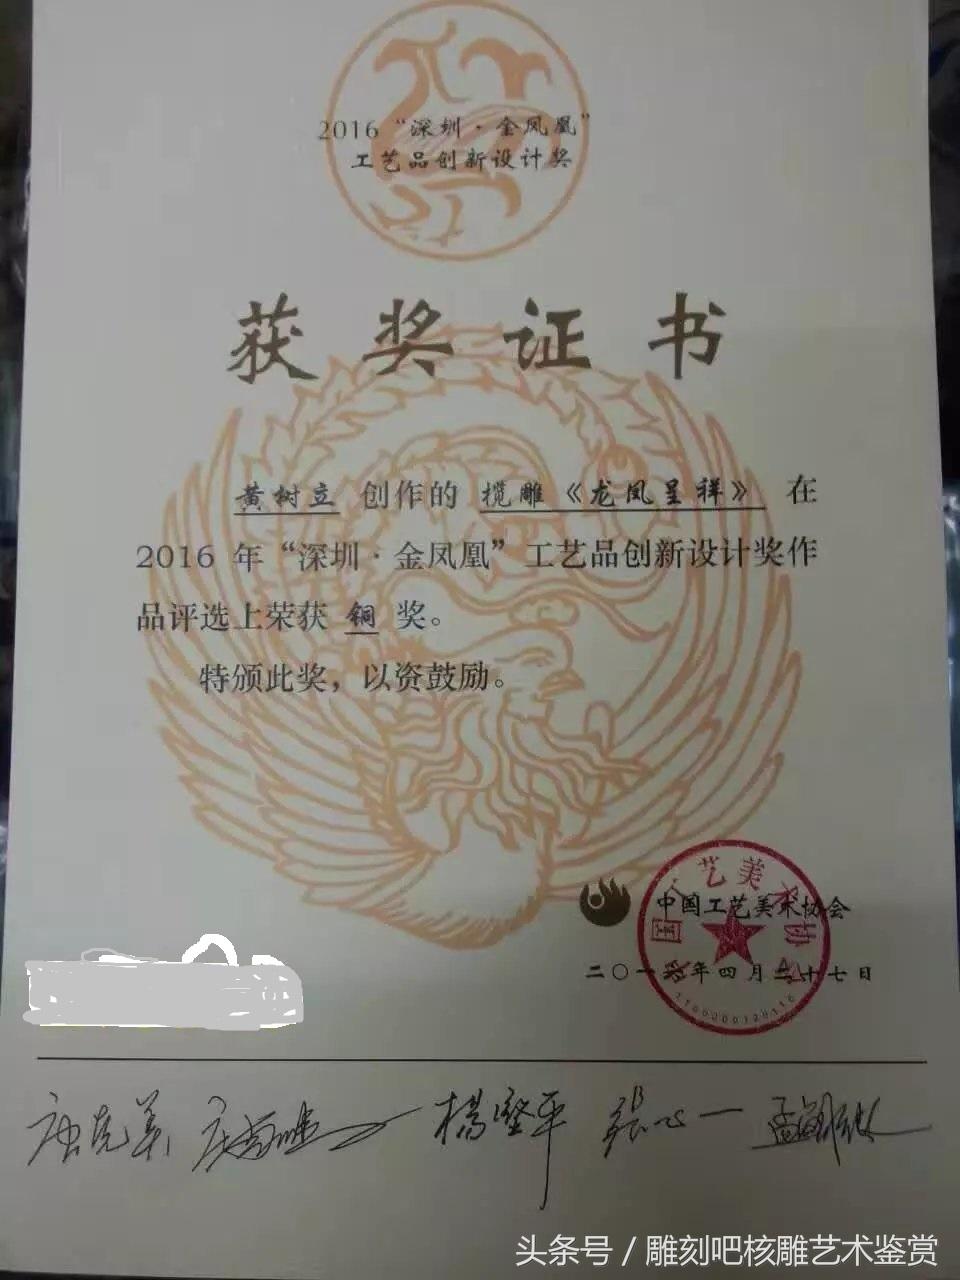 2016“深圳·金凤凰”
工艺品创新设计奖
获奖证书
黄树立 创作的 榄雕《龙凤呈祥》 在
2016 年“深圳·金凤凰”工艺品创新设计奖作
品评选上荣获 铜 奖。
特颁此奖，以资鼓励。
中国工艺美术协会
二〇一六年四月二十七日
唐克美 杨坚平 张心一
头条号 / 雕刻吧核雕艺术鉴赏